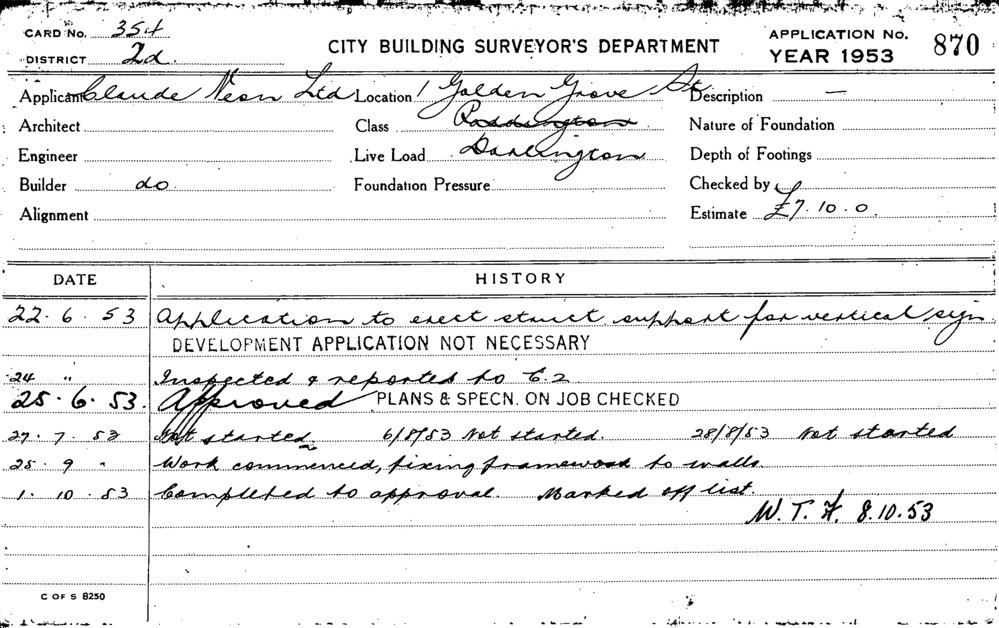 CARD No. 354
DISTRICT 2d.
CITY BUILDING SURVEYOR'S DEPARTMENT
APPLICATION No. 870
YEAR 1953
Applicant Claude Neon Ltd Location 1 Golden Grove St. Description —
Architect Class Paddington Nature of Foundation
Engineer Live Load Darlington Depth of Footings
Builder do Foundation Pressure Checked by
Alignment Estimate £7.10.0.
DATE HISTORY
22.6.53 Application to erect struct support for vertical sign.
DEVELOPMENT APPLICATION NOT NECESSARY
24 " Inspected & reported to C.2
25.6.53. Approved PLANS & SPECN. ON JOB CHECKED
27.7.53 Not started. 6/8/53 Not started. 28/8/53 Not started
25.9 " Work commenced, fixing framework to walls.
1.10.53 Completed to approval. Marked off list.
W.T.H. 8.10.53
C OF S 8250